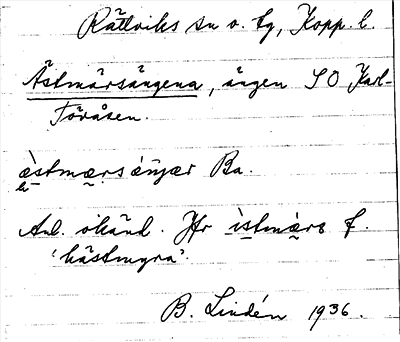 Rättviks sn o. tg, Kopp. l.
Ästmärsängena, ängen SO Karl-
Toråsen.
æ̀stmærs ǽŋær Ba.
Anl. okänd. Jfr ìstmærs f.
'hästmyra'.
B. Lindén 1936.